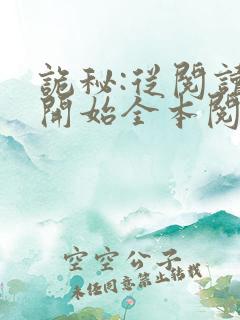 詭秘:從閱讀
開始全本閱
空空公子
未經同意禁止轉載